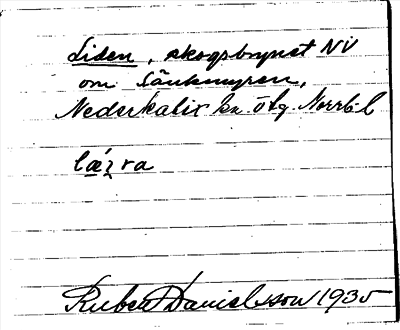 Liden, skogsbrynet NV
om Sänkmyren,
Nederkalix sn. ö lg. Norrb. l
lǽʒra
Ruben Danielsson 1935